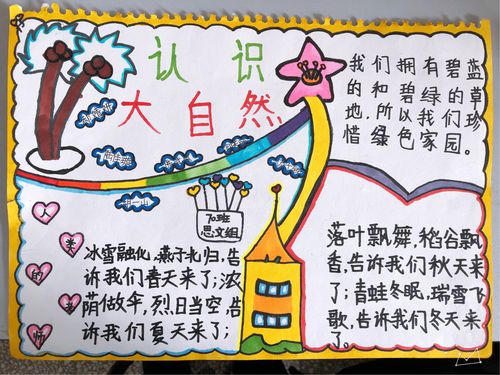 认识
大自然
我们拥有碧蓝
的和碧绿的草
地，所以我们珍
惜绿色家园。
70班
思文组
人
类
的
老
师
冰雪融化，燕子北归，告
诉我们春天来了；浓
荫做伞，烈日当空，告
诉我们夏天来了；
落叶飘舞，稻谷飘
香，告诉我们秋天来
了；青蛙冬眠，瑞雪飞
歌，告诉我们冬天来
了。